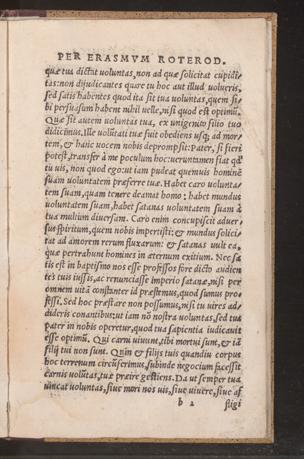 PER ERASMVM ROTEROD.
quæ tua dictat uoluntas, non ad quæ solicitat cupidi⸗
tas: non dijudicantes quare tu hoc aut illud uolueris,
sed satis habentes quod ita sit tua uoluntas, quem si⸗
bi persuasum habent nihil uelle, nisi quod est optimū.
Quæ sit autem uoluntas tua, ex unigenito filio tuo
didicimus. Ille uolūtati tuæ fuit obediens usq; ad mor⸗
tem, & hanc uocem nobis deprompsit: Pater, si fieri
potest, transfer à me poculum hoc: ueruntamen fiat qd'
tu uis, non quod ego: ut iam pudeat quemuis hominē
suam uoluntatem præferre tuæ. Habet caro uolunta⸗
tem suam, quam tenere deamat homo: habet mundus
uoluntatem suam, habet satanas uoluntatem suam à
tua multum diuersam. Caro enim concupiscit aduer⸗
sus spiritum, quem nobis impertisti: & mundus solici⸗
tat ad amorem rerum fluxarum: & satanas uult ea,
quæ pertrahunt homines in æternum exitium. Nec sa
tis est in baptismo nos esse professos fore dicto audien
teis tuis iussis, ac renunciasse imperio satanæ, nisi per
omnem uitā constanter id præstemus, quod sumus pro⸗
fessi. Sed hoc præstare non possumus, nisi tu uires ad⸗
dideris conantibus: ut iam nō nostra uoluntas, sed tua
pater in nobis operetur, quod tua sapientia iudicauit
esse optimū. Qui carni uiuunt, tibi mortui sunt, & iā
filij tui non sunt. Quin & filijs tuis quandiu corpus
hoc terrenum circūferimus, subinde negocium facessit
carnis uolūtas, tuæ præire gestiens. Da ut semper tua
uincat uoluntas, siue mori nos uis, siue uiuere, siue af
b 2 fligi